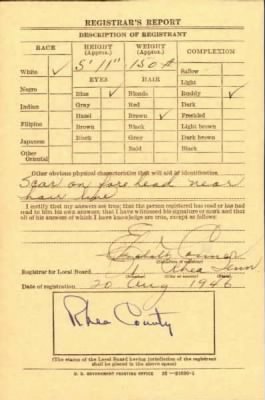 REGISTRAR'S REPORT
DESCRIPTION OF REGISTRANT
RACE HEIGHT (Approx.) WEIGHT (Approx.) COMPLEXION
White ✓ 5' 11" 150 # Sallow
EYES HAIR Light
Negro Blue ✓ Blonde Ruddy ✓
Indian Gray Red Dark
Hazel Brown ✓ Freckled
Filipino Brown Black Light brown
Japanese Black Gray Dark brown
Other Oriental Bald Black
Other obvious physical characteristics that will aid in identification
Scar on forehead near
hair line
I certify that my answers are true; that the person registered has read or has had
read to him his own answers; that I have witnessed his signature or mark and that
all of his answers of which I have knowledge are true, except as follows:
Registrar for Local Board Rhea Tenn
Date of registration 20 Aug 1946
Rhea County
(The stamp of the Local Board having jurisdiction of the registrant
shall be placed in the above space)
U. S. GOVERNMENT PRINTING OFFICE